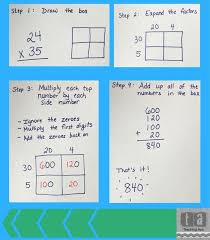 Step 1: Draw the box
24
x 35
Step 2: Expand the factors
20 4
30
5
Step 3: Multiply each top
number by each
side number
- Ignore the zeroes
- Multiply the first digits
- Add the zeroes back on
20 4
30 600 120
5 100 20
Step 4: Add up all of the
numbers in the box
600
120
100
+ 20
840
That's it!
840
t a